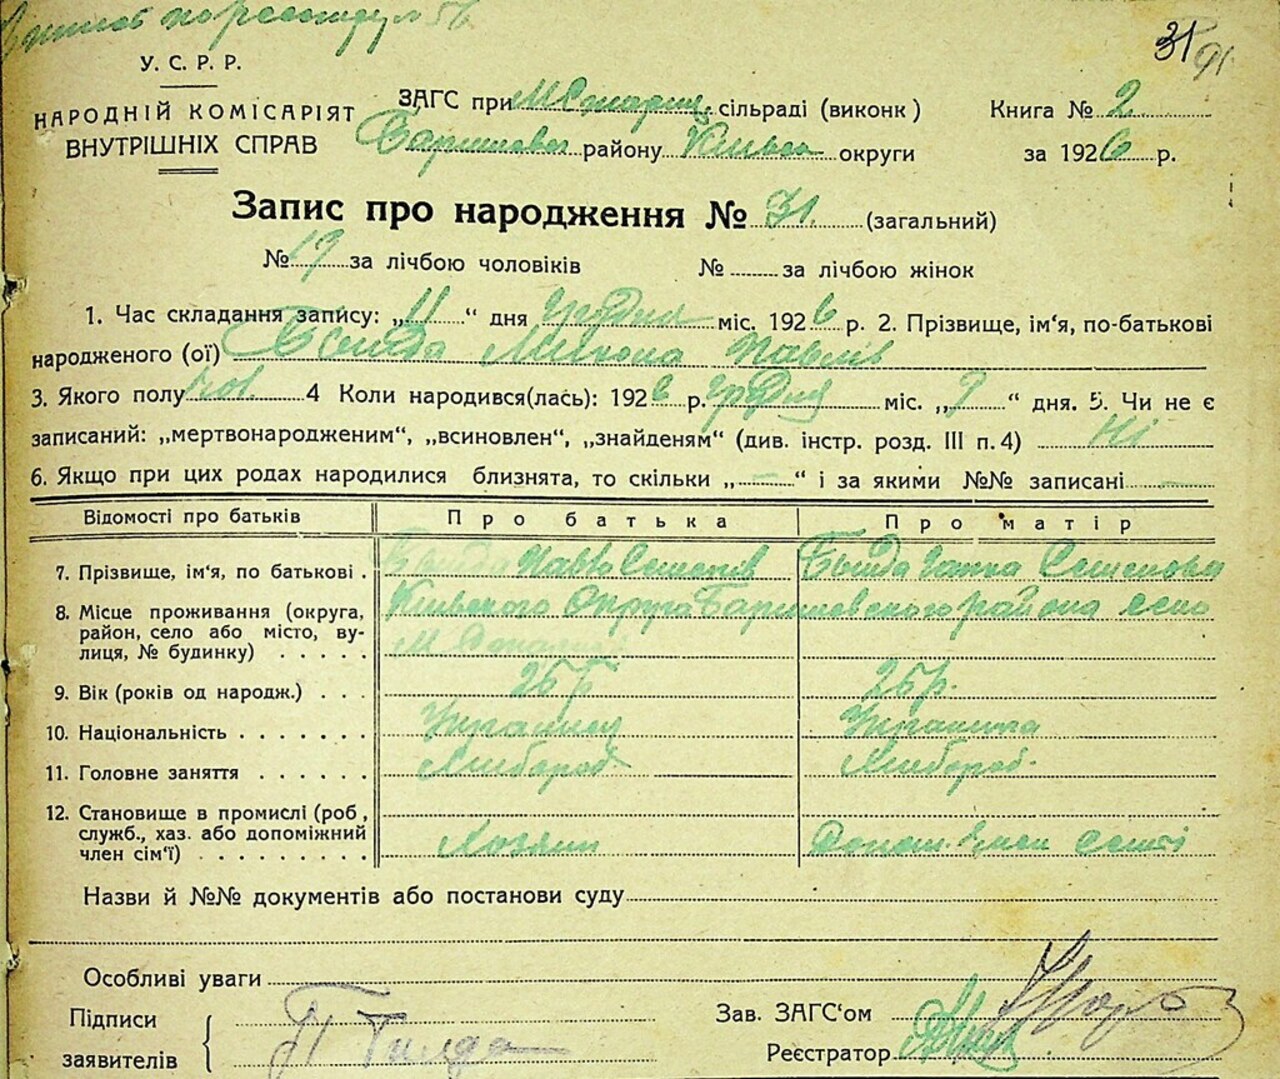 31
У. С. Р. Р.
НАРОДНІЙ КОМІСАРІЯТ
ВНУТРІШНІХ СПРАВ
ЗАГС при сільраді (виконк)
району округи
Книга № 2
за 1926 р.
Запис про народження № 31. (загальний)
№ 19 за лічбою чоловіків № за лічбою жінок
1. Час складання запису: „11" дня грудня міс. 1926 р. 2. Прізвище, ім'я, по-батькові
народженого (ої) Микола Павлів
3. Якого полу чол. 4 Коли народився(лась): 1926 р. грудня міс. „9" дня. 5. Чи не є
записаний: „мертвонародженим", „всиновлен", „знайденям" (див. інстр. розд. III п. 4) Ні
6. Якщо при цих родах народилися близнята, то скільки „—" і за якими №№ записані —
Відомості про батьків Про батька Про матір
7. Прізвище, ім'я, по батькові . Павло Семенів Ганна Семенова
8. Місце проживання (округа, Київского Округа Баришевского района село
район, село або місто, ву-
лиця, № будинку) . . . . .
9. Вік (років од народж.) . . . 26 р 26 р.
10. Національність . . . . . . . Украинец Украинка
11. Головне заняття . . . . . . Хлібороб Хлібороб.
12. Становище в промислі (роб,
служб., хаз. або допоміжний
член сім'ї) . . . . . . . . . Хозяин член семті
Назви й №№ документів або постанови суду
Особливі уваги
Підписи
заявителів
Зав. ЗАГС'ом
Реєстратор